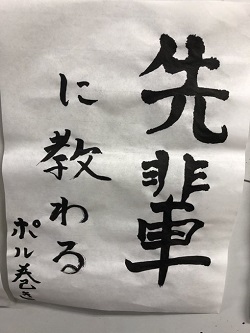 先輩
に教わる
ポル巻き